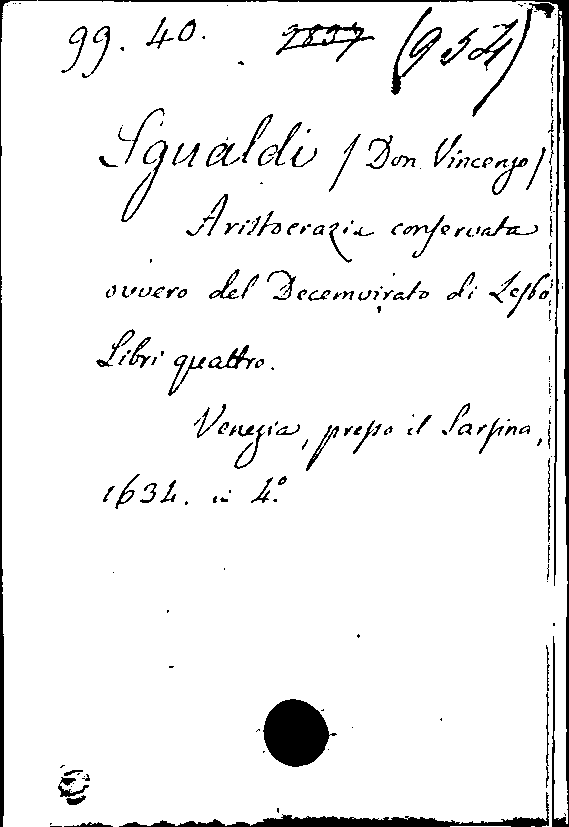 99. 40. 2837 (954)
Sgualdi / Don Vincenzo /
Aristocrazia conservata
ovvero del Decemvirato di Lesbo
Libri quattro.
Venezia, presso il Sarsina,
1634. in 4.º